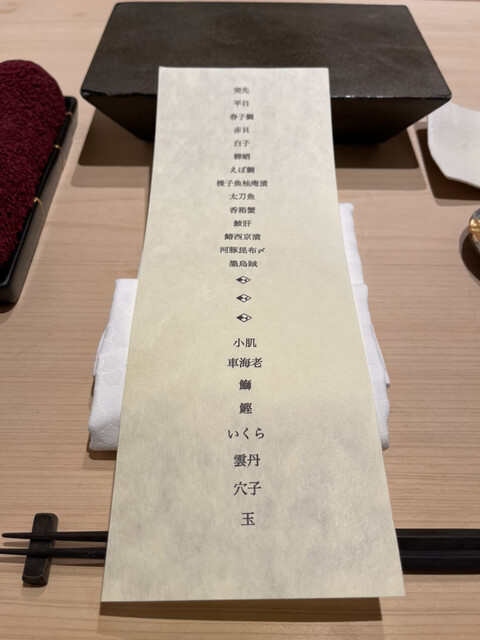 突先
平目
春子鯛
赤貝
白子
鯛
えぼ鯛
梭子魚柚庵漬
太刀魚
香箱蟹
鮟肝
鰆西京漬
河豚昆布〆
墨烏賊
小肌
車海老
鰤
鰹
いくら
雲丹
穴子
玉